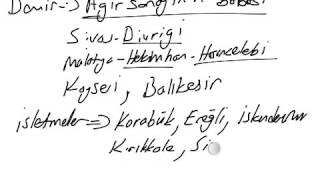 Demir => Ağır Sanayinin babası
Sivas - Divriği
Malatya - Hekimhan - Hasançelebi
Kayseri, Balıkesir
işletmeler => Karabük, Ereğli, İskenderun
Kırıkkale, Si